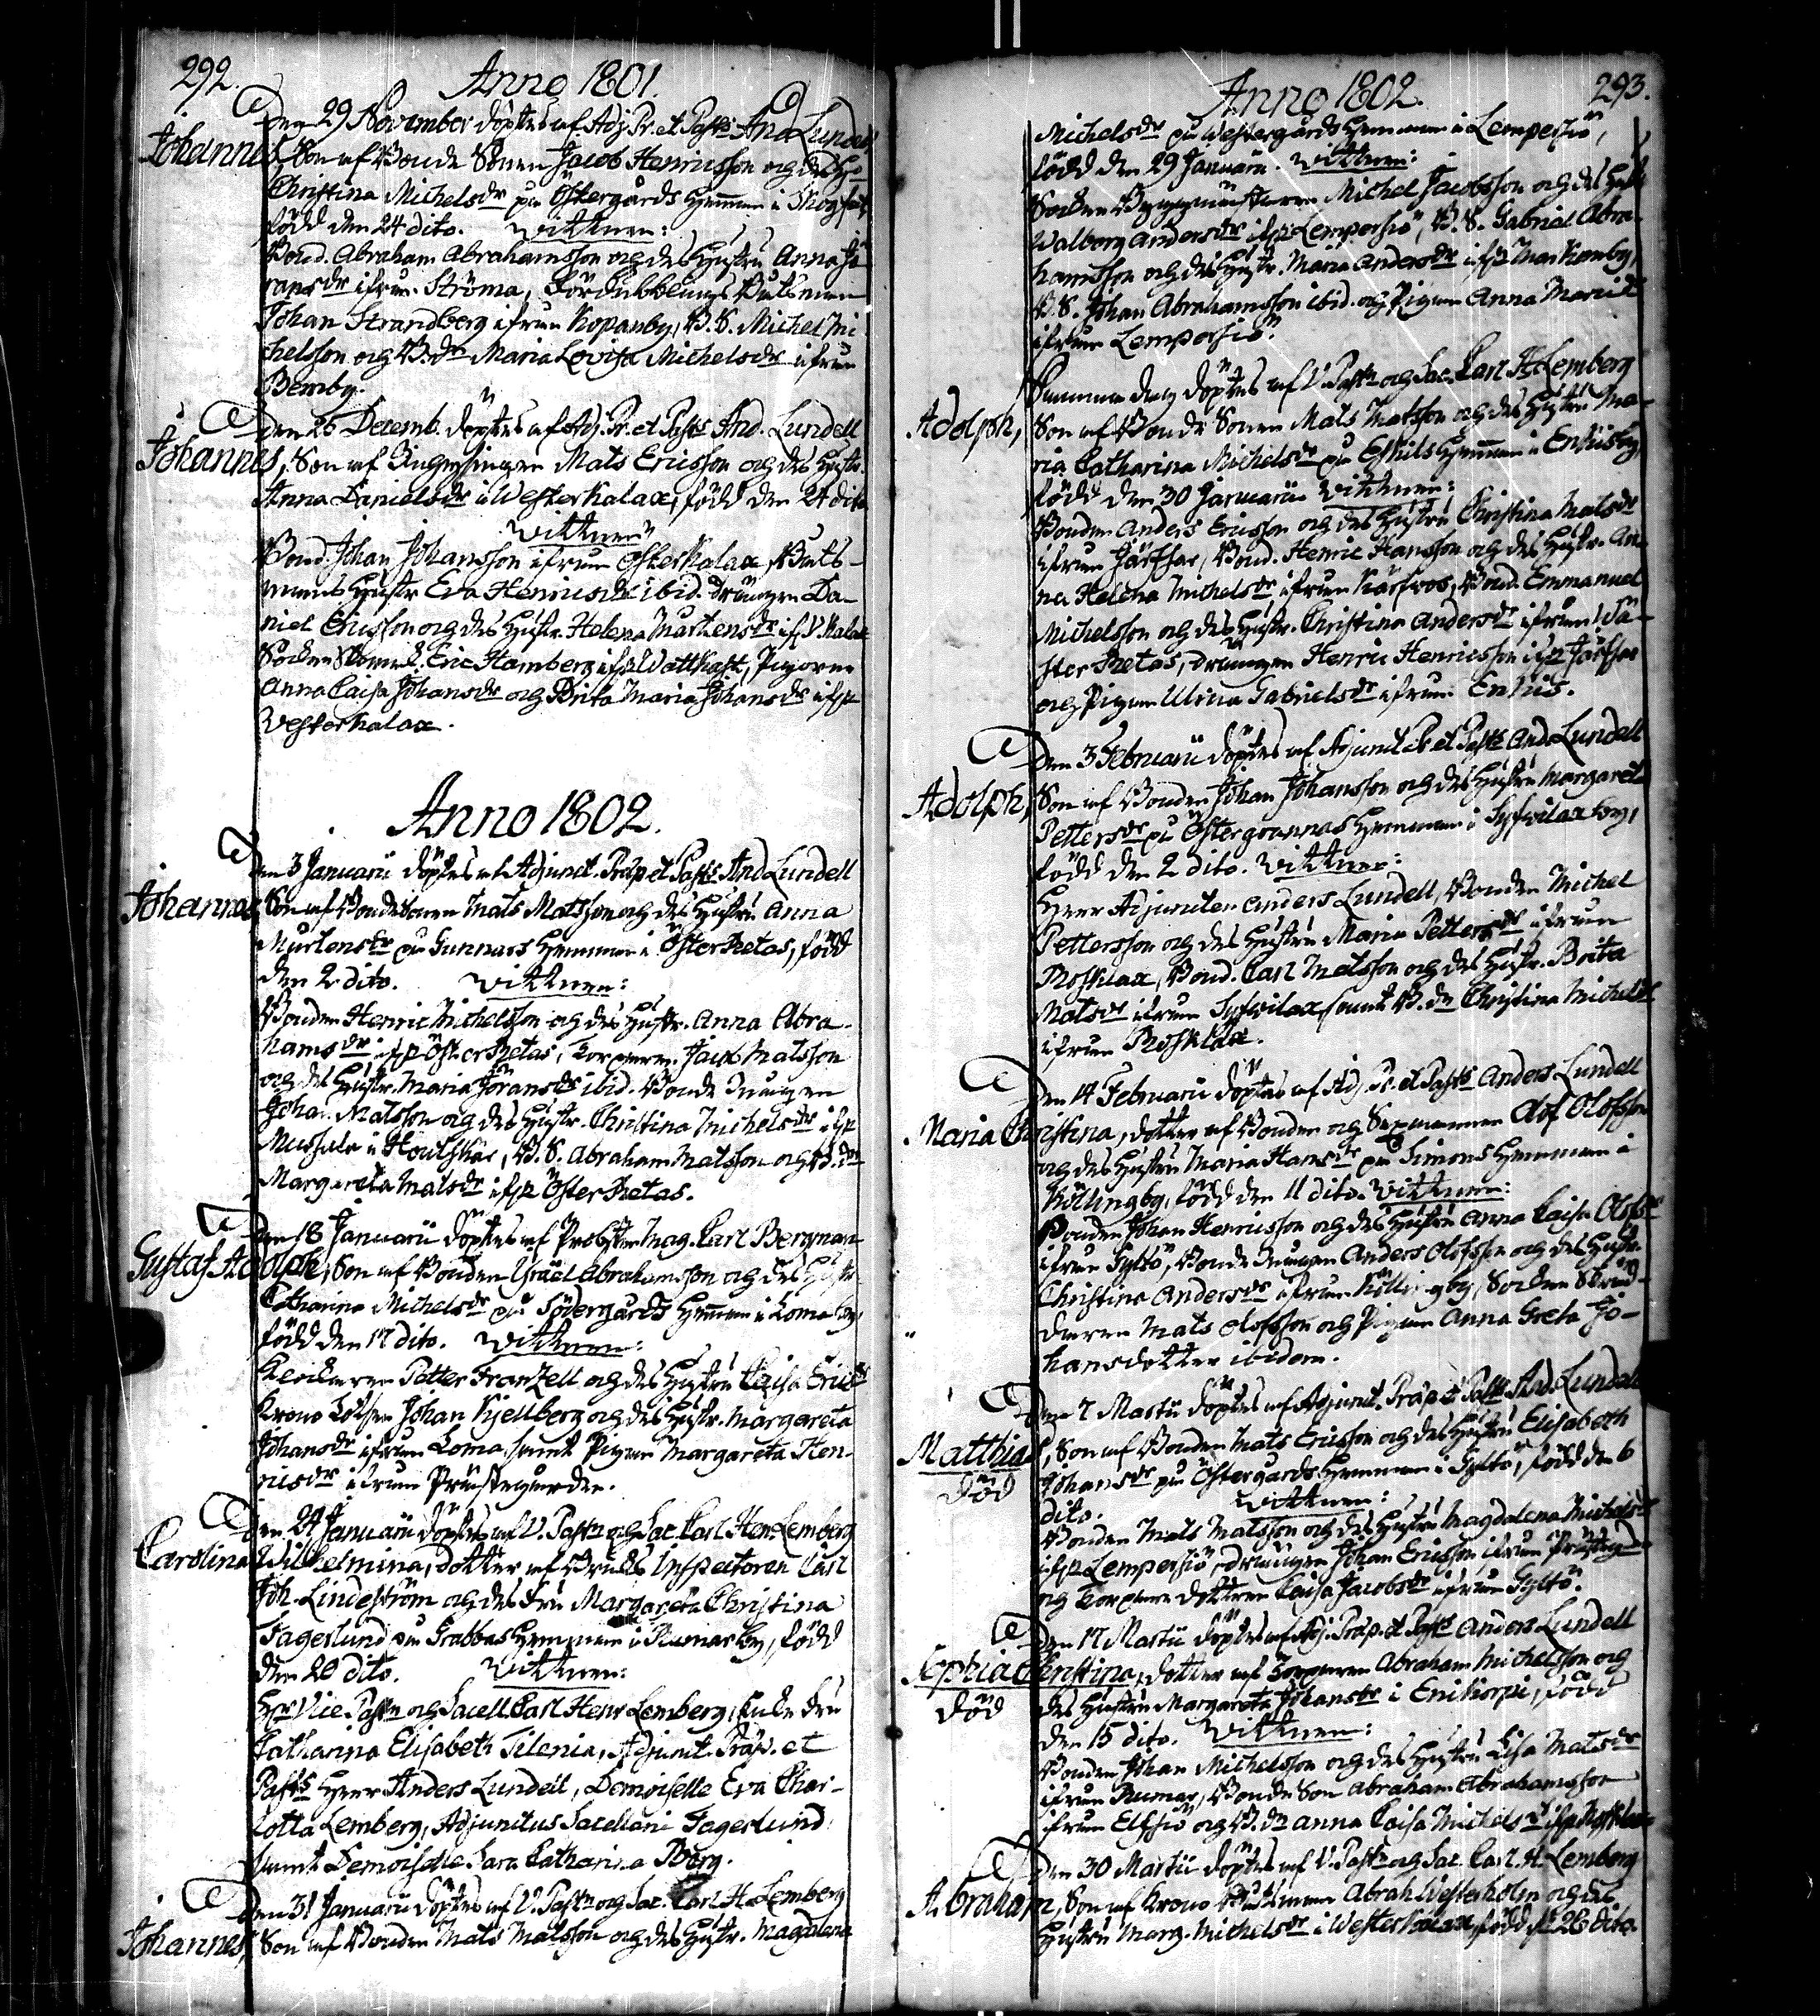 292.
Anno 1801.
Den 29 November döptes af Adj. Pr. et Past: And Lundell
Johannes, Son af Bonde Sonen Jacob Henricsson och des Hu
Christina Michelsdr på Östergårds Hemman i
född den 24 dito. Wittnen:
Bond. Abraham Abrahamsson och des Hustru Anna Jö
ransdr ifrån Ströma, Fördubblings Båtsman
Johan Strandberg ifrån Kopanby, B. S. Michel Mi
chelsson och B. dr Maria Lovisa Michelsdr ifrån
Bemby.
Den 26 Decemb. döptes af Adj. Pr. et Past: And. Lundell
Johannes, Son af Mats Ericsson och des Hustr.
Anna Danielsdr i Westerkalax, född den 24 dito
Wittnen
Bond. Johan Johansson ifrån Österkalax, Båts-
mans Hustr Eva Henricsdr ibid. drängen Da-
niel Ericsson och des Hustr. Helena Mårtensdr if. W. Kalax
Socken Eric Hamberg ifr Wattkast, Pigorne
Anna Caisa Johansdr och Brita Maria Johansdr ifr
Westerkalax.
Anno 1802.
Den 3 Januarii döptes af Adjunct. Præp et Past: And Lundell
Johannes, Son af Bonde Sonen Mats Matsson och des Hustru Anna
Mårtensdr på Gunnars Hemman i Öster Retas, född
den 2 dito. Wittnen:
Bonden Henric Michelsson och des Hustr. Anna Abra-
hamsdr ifr Öster Retas, Torparen Jacob Matsson
och des Hustr. Maria Jöransdr ibid. Bonde Mågen
Johan Matsson och des Hustr. Christina Michelsdr ifr
i Houtskär, B. S. Abraham Matsson och B. dr
Margareta Matsdr ifr Öster Retas.
Den 18 Januarii döptes af Probsten Mag. Carl Bergman
Gustaf Adolph, Son af Bonden Israël Abrahamsson och des Hustr
Catharina Michelsdr på Södergårds Hemman i Loma by,
född den 17 dito. Wittnen:
Petter Frantzell och des Hustru Caisa Ericsdr
Krono Lotsen Johan Kjellberg och des Hustr. Margareta
Johansdr ifrån Loma, samt Pigan Margareta Hen-
ricsdr ifrån Prästegården.
Den 24 Januarii döptes af V. Past. och Sac. Carl Henr Lemberg
Carolina Wilhelmina, dotter af Bruks Inspectoren Carl
Joh. Lindeström och des Fru Margareta Christina
Fagerlund på Grabbas Hemman i Rumar by, född
den 20 dito. Wittnen:
Hr Vice Past. och Sacell Carl Henr Lemberg, Enke Fru
Catharina Elisabeth Tilenia, Adjunct. Præp. et
Past: Herr Anders Lundell, Demoiselle Eva Char-
lotta Lemberg, Adjunctus Sacellani Fagerlund
samt Demoiselle Sara Catharina Berg.
Den 31 Januarii döptes af V. Past. och Sac. Carl H. Lemberg
Johannes, Son af Bonden Mats Matsson och des Hustr. Magdalena
293.
Anno 1802.
Michelsdr på Westergårds Hemman i Lempersiö,
född den 29 Januarii. Wittnen:
Socken Byggmästaren Michel Jacobsson och des Hustr
Walborg Andersdr ifr Lempersiö, B. S. Gabriel Abra-
hamsson och des Hustr. Maria Andersdr ifr Markomby,
B. S. Johan Abrahamsson ibid. och Pigan Anna
ifrån Lempersiö.
Samma dag döptes af V. Past. och Sac. Carl H Lemberg
Adolph, Son af Bonde Sonen Mats Matsson och des Hustru Ma-
ria Catharina Michelsdr på Eskils Hemman i Enlisby,
född den 30 Januarii Wittnen:
Bonden Anders Ericsson och des Hustru Christina Matsdr
ifrån Järfsar, Bond. Henric Hansson och des Hustr. An-
na Helena Michelsdr ifrån, Bond. Emmanuel
Michelsson och des Hustr. Christina Andersdr ifrån Wä-
ster Retas, drängen Henric Henricsson ifr Järfsar
och Pigan Ulrica Gabrielsdr ifrån Enlis.
Den 3 Februarii döptes af Adjunct Pr et Past: And Lundell
Adolph, Son af Bonden Johan Johansson och des Hustru Margaret
Pettersdr på Östergrannas Hemman i Sysvilax by,
född den 2 dito. Wittnen:
Herr Adjuncten Anders Lundell, Bonden Michel
Pettersson och des Hustru Maria Pettersdr ifrån
Roslax, Bond. Carl Matsson och des Hustr. Brita
Matsdr ifrån Sysvilax, samt B. dr Christina Michelsdr
ifrån Roslax.
Den 14 Februarii döptes af Adj. Pr. et Past: Anders Lundell
Maria Christina, dotter af Bonden och Sexmannen Olof Olofsson
och des Hustru Maria Hansdr på Simons Hemman i
Källingby, född den 11 dito. Wittnen:
Bonden Johan Henricsson och des Hustru Anna Caisa Olofsdr
ifrån Gyltö, Bonde Mågen Anders Olofsson och des Hustr.
Christina Andersdr ifrån Källingby, Socken Skräd-
daren Mats Olofsson och Pigan Anna Greta Jo-
hansdotter ibidem.
Den 7 Martii döptes af Adjunct. Præp. et Past: And. Lundell
Matthias, Son af Bonden Mats Ericsson och des Hustru Elisabeth
död
Johansdr på Östergårds Hemman i Gyltö, född den 6
dito. Wittnen:
Bonden Mats Matsson och des Hustru Magdalena Michelsdr
ifr Lempersiö, drängen Johan Ericsson ifrån Prästeg
och Torpare dottren Caisa Jacobsdr ifrån Gyltö.
Den 17 Martii döptes af Adj. Præp. et Past: Anders Lundell
Sophia Christina, dotter af Torparen Abraham Michelsson och
död
des Hustru Margareta Johansdr i Enikorpi, född
den 15 dito. Wittnen:
Bonden Johan Michelsson och des Hustru Lisa Matsdr
ifrån Rumar, Bonde Son Abraham Abrahamsson
ifrån Elfsiö och B. dr Anna Caisa Michelsdr ifr Roslax
Den 30 Martii döptes af V. Past. och Sac. Carl H. Lemberg
Abraham, Son af Krono Båtsman Abrah Westerholm och des
Hustru Marg. Michelsdr i Westerkalax, född d 26 dito